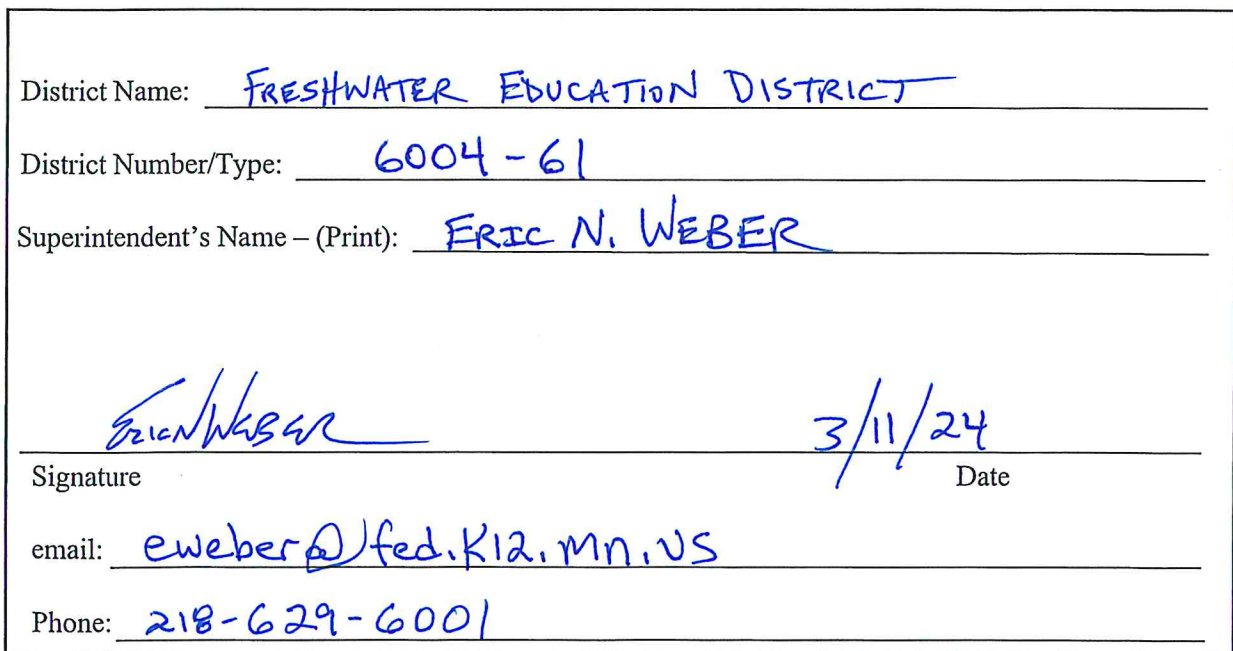 District Name: FRESHWATER EDUCATION DISTRICT
District Number/Type: 6004-61
Superintendent's Name – (Print): ERIC N. WEBER
Eric N Weber 3/11/24
Signature Date
email: eweber@fed.K12.mn.US
Phone: 218-629-6001